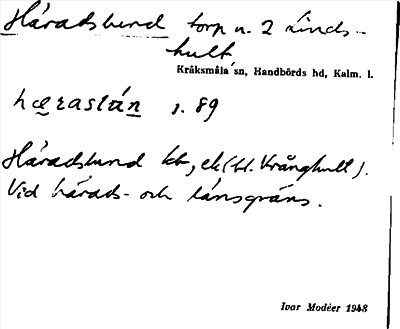 Häradslund torp u. 2 Linds-
hult
Kråksmåla sn, Handbörds hd, Kalm. l.
hæraslún s. 89
Häradslund kb, ek (bl. Krånghult).
Vid härads- och länsgräns.
Ivar Modéer 1948